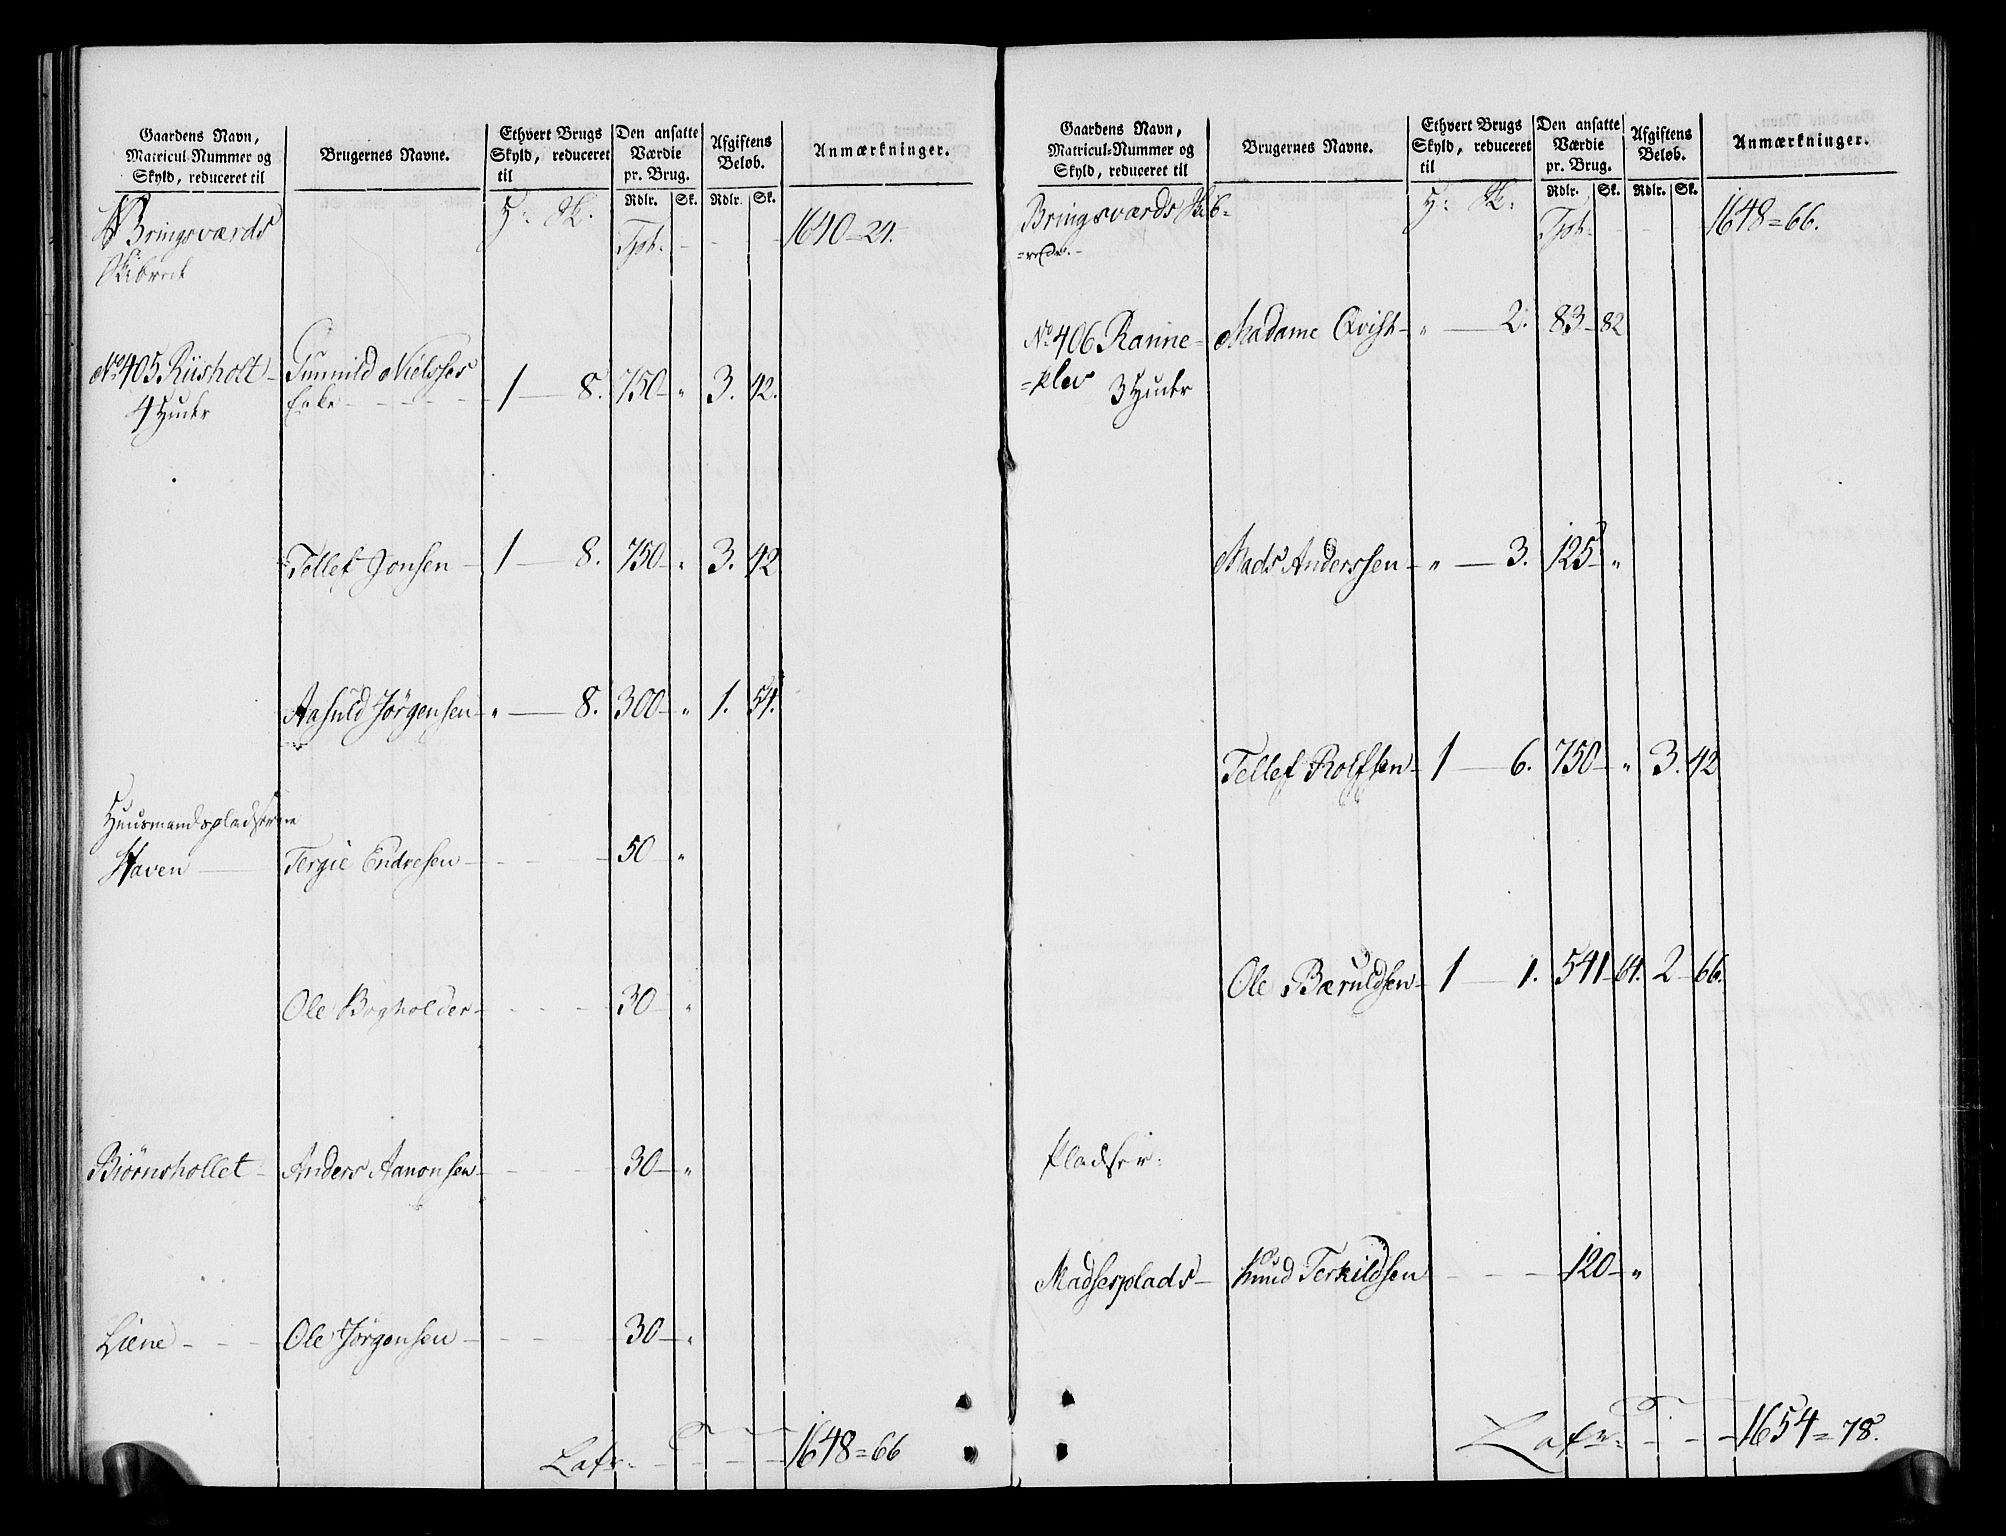 Gaardens Navn, Matricul-Nummer og Skyld, reduceret til
Brugernes Navne.
Ethvert Brugs Skyld, reduceret til
Den ansatte Værdie pr. Brug.
Afgiftens Beløb.
Anmærkninger.
Rdlr. Sk. Rdlr. Sk.
Bringsværds
Skibred
H: Sk: Tpt. - - - 1640 - 24.
No 405 Riisholt - Gunnild Nielsses
4 Huder
Enke - - - 1 — 8. 750 - " 3. 42.
Tellef Jonsen - 1 — 8. 750 - " 3. 42
Aasuld Jørgensen - " — 8. 300 - " 1. 54.
Huusmandspladserne
Haven — Tergie Endresen - - - - 50 - "
Ole Bogholder - - - - 30 - "
Biørnshollet - Anders Aanonsen - - - 30 - "
Liene - - - Ole Jørgensen - - - - 30 - "
Lats. - - - - 1648 = 66
Gaardens Navn, Matricul-Nummer og Skyld, reduceret til
Brugernes Navne.
Ethvert Brugs Skyld, reduceret til
Den ansatte Værdie pr. Brug.
Afgiftens Beløb.
Anmærkninger.
Rdlr. Sk. Rdlr. Sk.
Bringsværds Skib=
=rede. -
H: Sk: Tpt. - - - 1648 = 66.
No 406 Ranne= Madame Qvist - " — 2. 83 - 82
=klev 3 Huder
Mads Anderssen - " — 3. 125 - "
Tellef Rolfsen - 1 — 6. 750 - " 3. 42
Ole Bæruldsen - 1 — 1. 541 - 64. 2 - 66.
Pladser:
Madsesplads - Knud Terkildsen - - - 120 - "
Lats. - - - 1654 = 78.